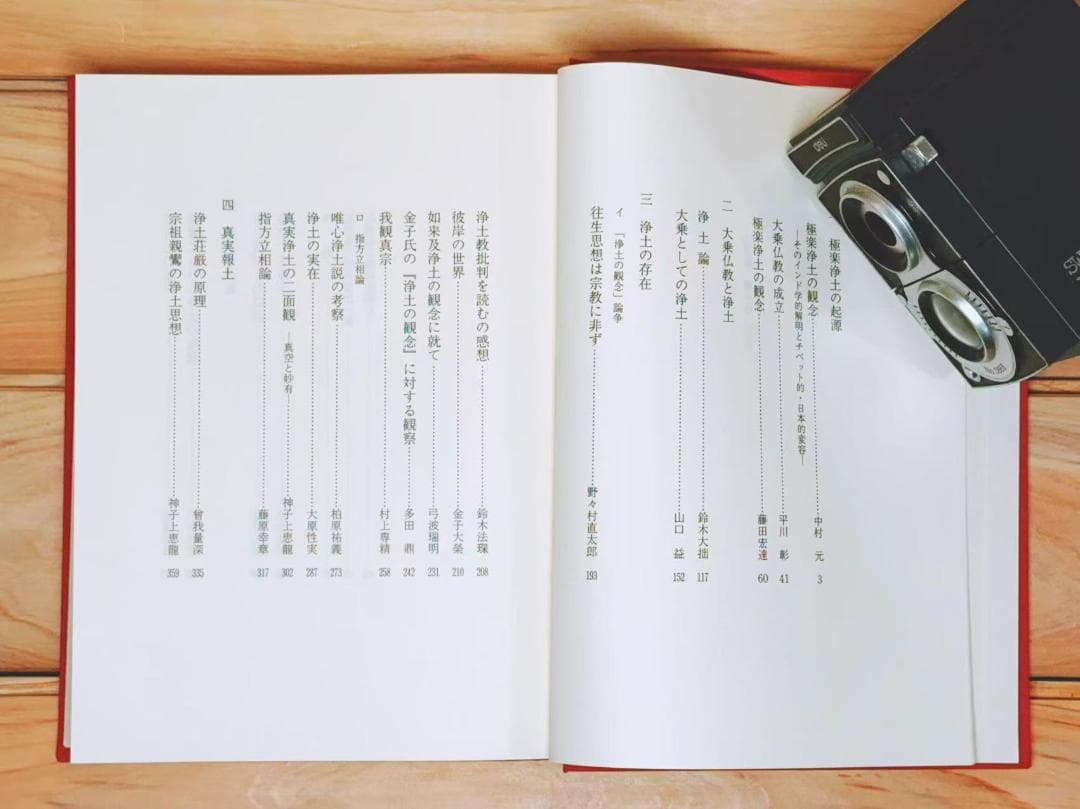 極楽浄土の起源
極楽浄土の観念
―そのインド学的解明とチベット的・日本的変容― 中村 元 3
大乗仏教の成立 平川 彰 41
極楽浄土の観念 藤田宏達 60
二 大乗仏教と浄土
浄土論 鈴木大拙 117
大乗としての浄土 山口 益 152
三 浄土の存在
イ 「浄土の観念」論争
往生思想は宗教に非ず 野々村直太郎 193
浄土教批判を読むの感想 鈴木法琛 208
彼岸の世界 金子大榮 210
如来及浄土の観念に就て 弓波瑞明 231
金子氏の『浄土の観念』に対する観察 多田 鼎 242
我観真宗 村上専精 258
ロ 指方立相論
唯心浄土説の考察 柏原祐義 273
浄土の実在 大原性実 287
真実浄土の二面観 ―真空と妙有 神子上恵龍 302
指方立相論 藤原幸章 317
四 真実報土
浄土荘厳の原理 曾我量深 335
宗祖親鸞の浄土思想 神子上恵龍 359